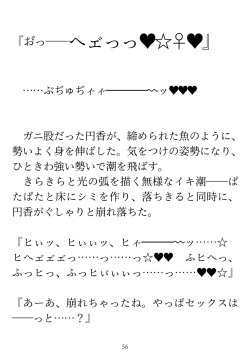 『おっ──へェっっ♥☆♀♥』
……ぷぢゅぢィィ━━━━〜ッ♥♥♥
ガニ股だった円香が、締められた魚のように、
勢いよく身を伸ばした。気をつけの姿勢になり、
ひときわ強い勢いで潮を飛ばす。
きらきらと光の弧を描く無様なイキ潮──ば
たばたと床にシミを作り、落ちきると同時に、
円香がぐしゃりと崩れ落ちた。
『ヒぃッ、ヒぃぃッ、ヒィ━━━〜ッ……☆
ヒヘェェェっ……っ……っ☆♥♥　ふヒへっ、
ふっヒっ、ふっヒぃぃぃっ……っ……♥♥☆』
『あーあ、崩れちゃったね。やっぱセックスは
──っと……？』
56